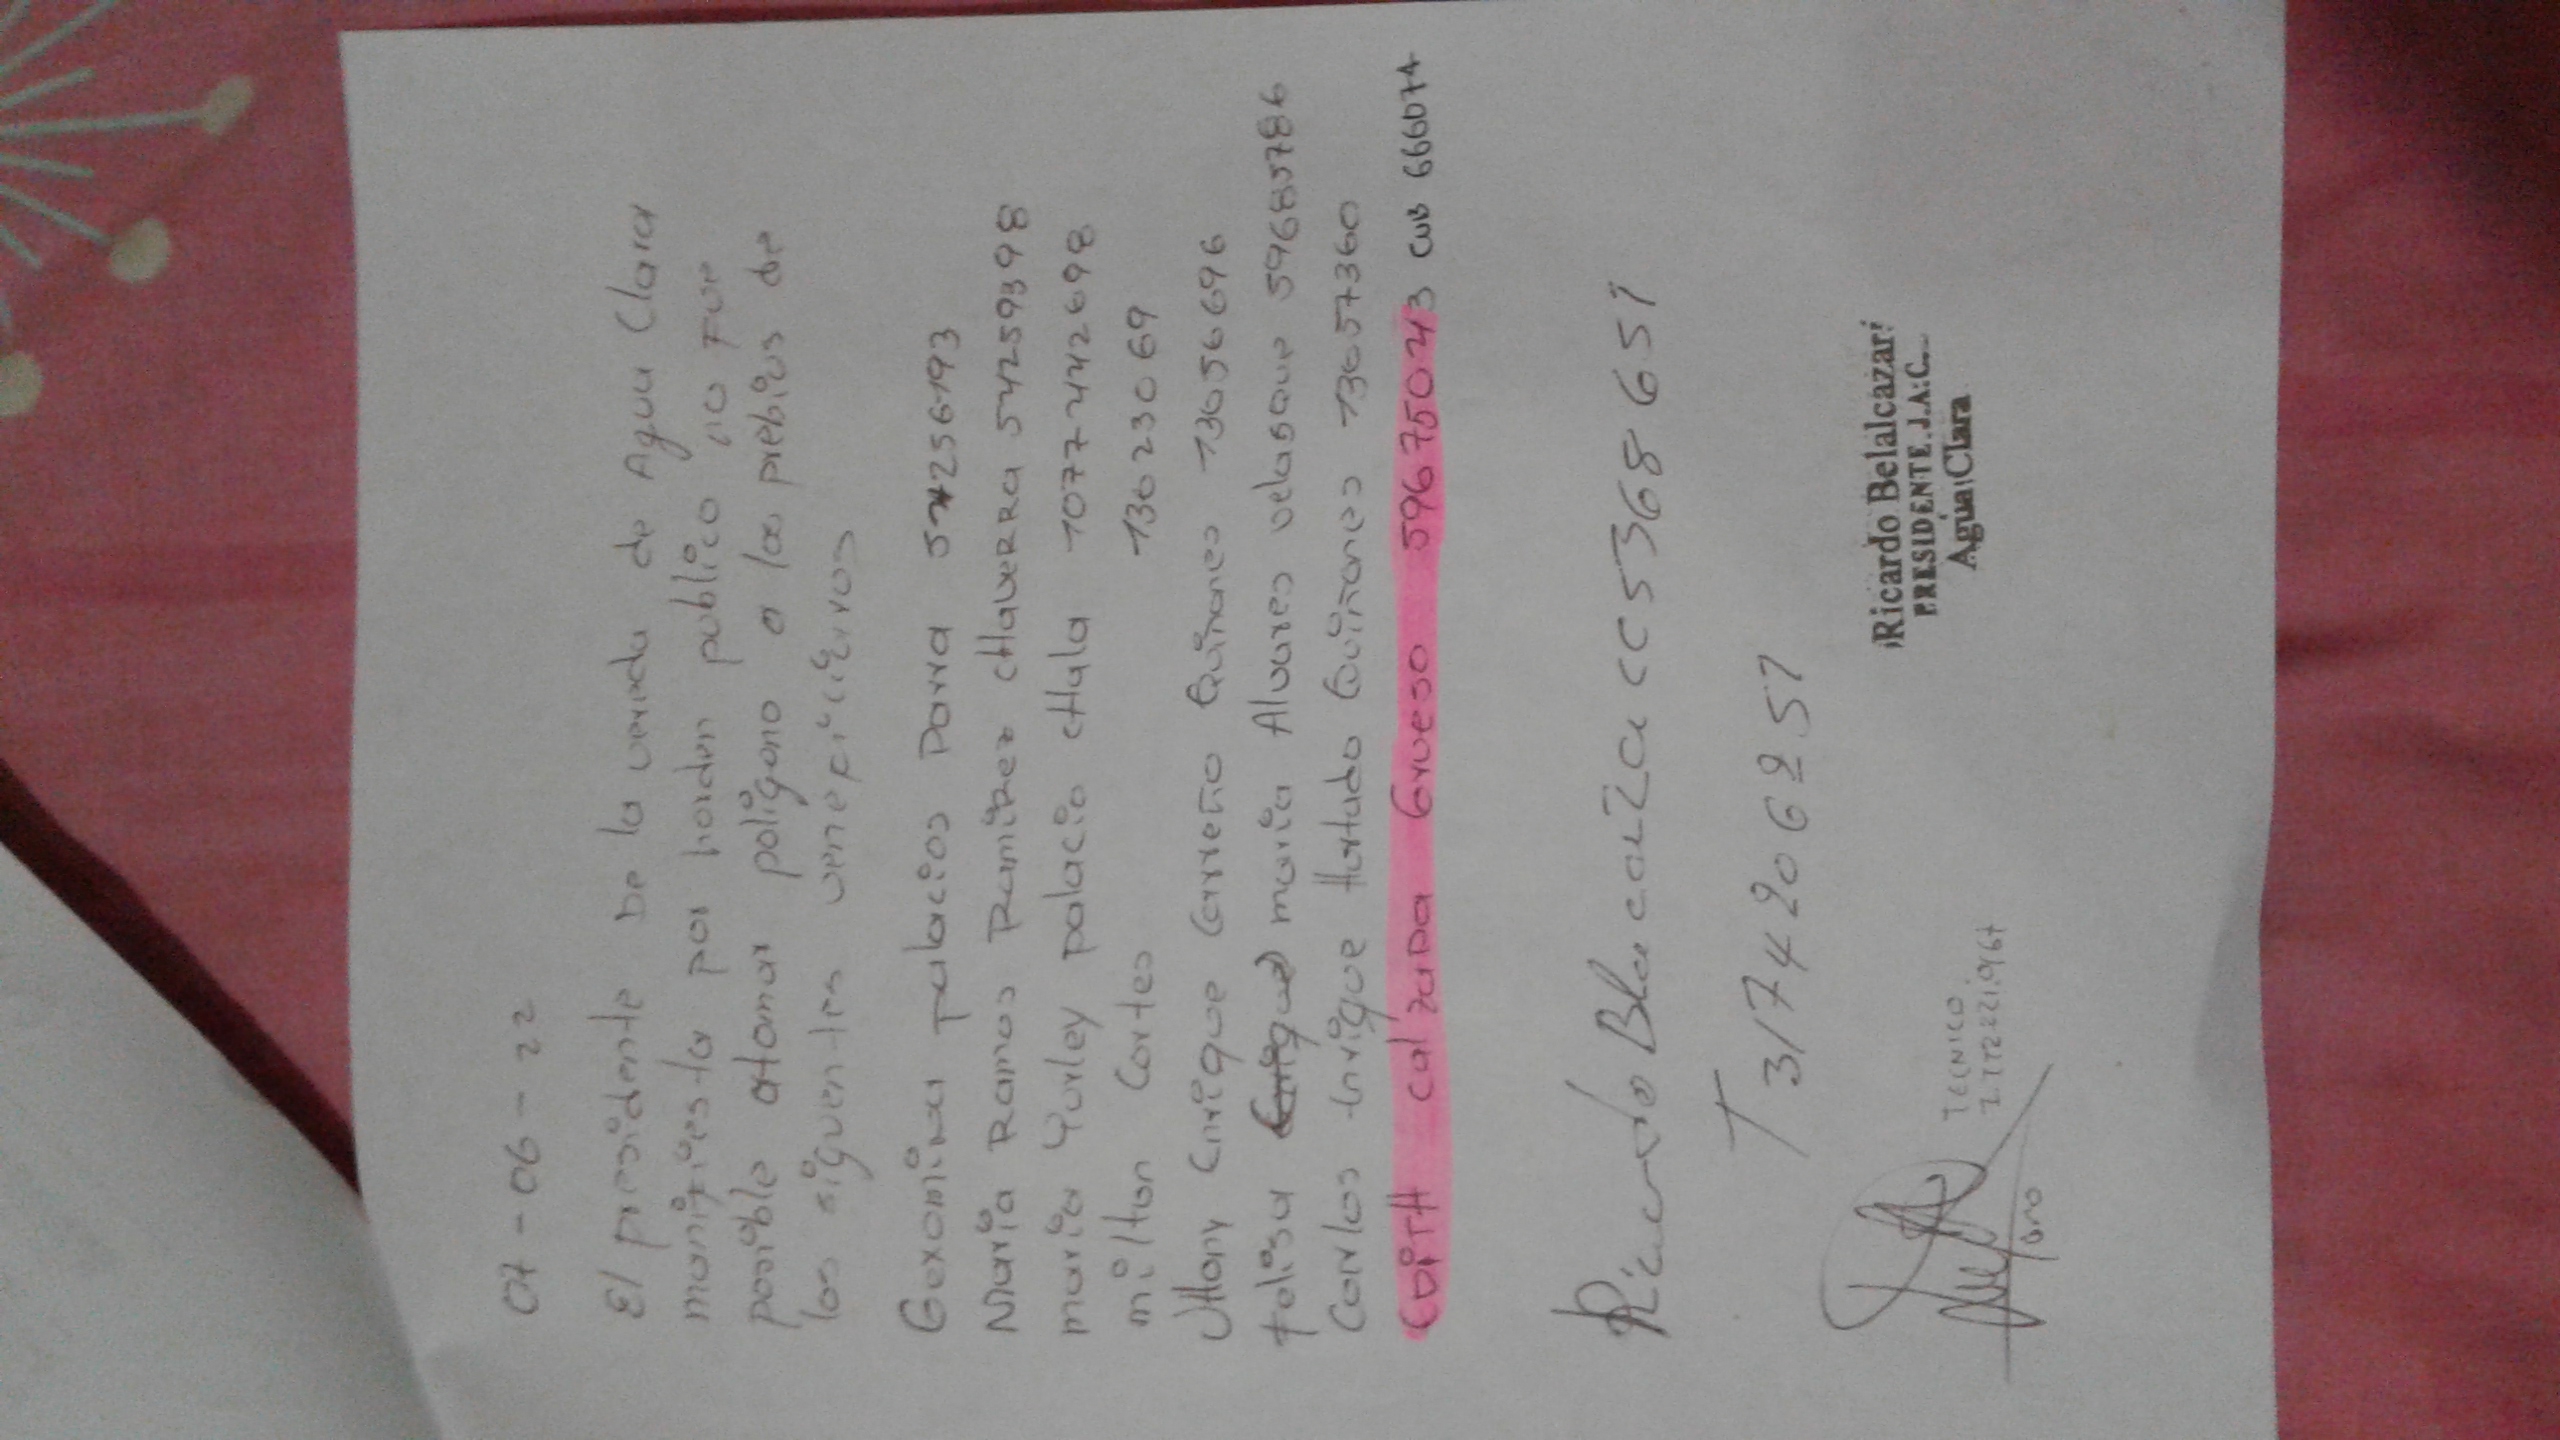 07-06-22
El presidente De la vereda de Agua Clara
manifiesta por horden publico no fue
posible atomar poligono a los prebios de
los siguentes veneficiarios
Gexomina palacios Parra 54256193
Maria Ramos Ramirez CHaveRRa 54259398
maria Yurley palacio cHala 1077442698
milton Cortes 13623069
JHony Enrique Carreño Quinones 13056696
Felisa maria Alvares velasque 596885786
Carlos Enrique Hurtado Quiñones 13057360
EDITH calzada Grueso 596750243 CUB 666074
Ricardo Bla cc 5368651
T 3174206251
Ricardo Belalcazar
PRESIDENTE.J.A.C.
Agua Clara
TECNICO